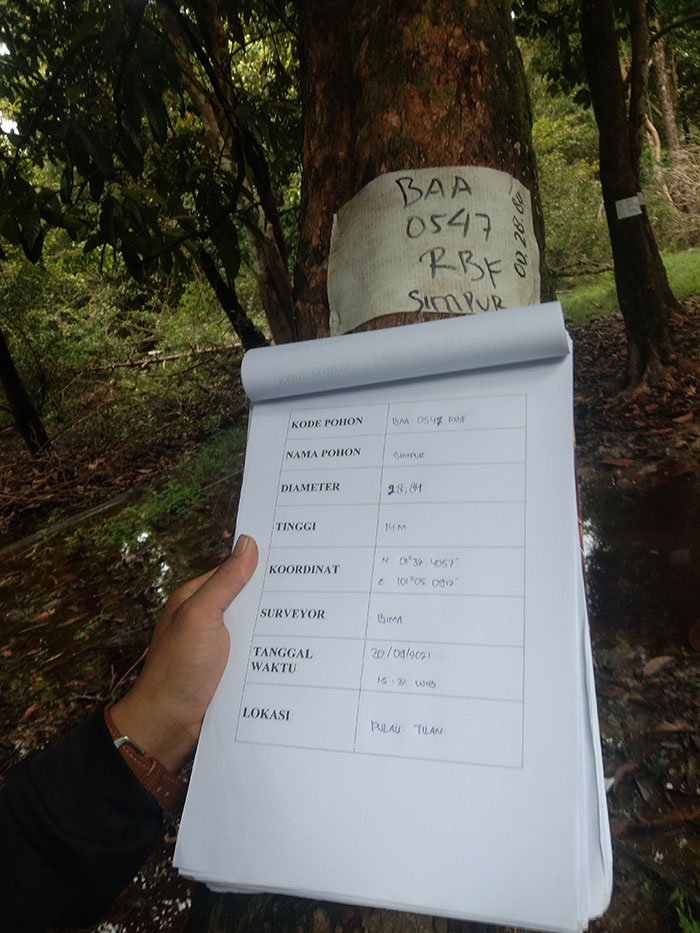 BAA
0547
RBF
SIMPUR
KODE POHON BAA 0547 RBF
NAMA POHON SIMPUR
DIAMETER 28,84
TINGGI 14 M
KOORDINAT N 01°32.4057'
E 101°05.0912'
SURVEYOR BIMA
TANGGAL 30/09/2021
WAKTU 15:31 WIB
LOKASI PULAU TILAN